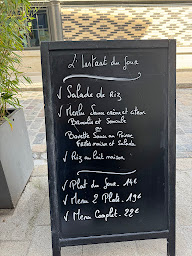 L'Instant du Jour
✓ Salade de Riz
✓ Merlu Sauce crème et citron
Brunoise et Semoule
ou
Bavette Sauce au Poivre
Frites maison et Salade
✓ Riz au lait maison
✓ Plat du Jour. 14€
✓ Menu 2 Plats. 19€
✓ Menu Complet. 22€